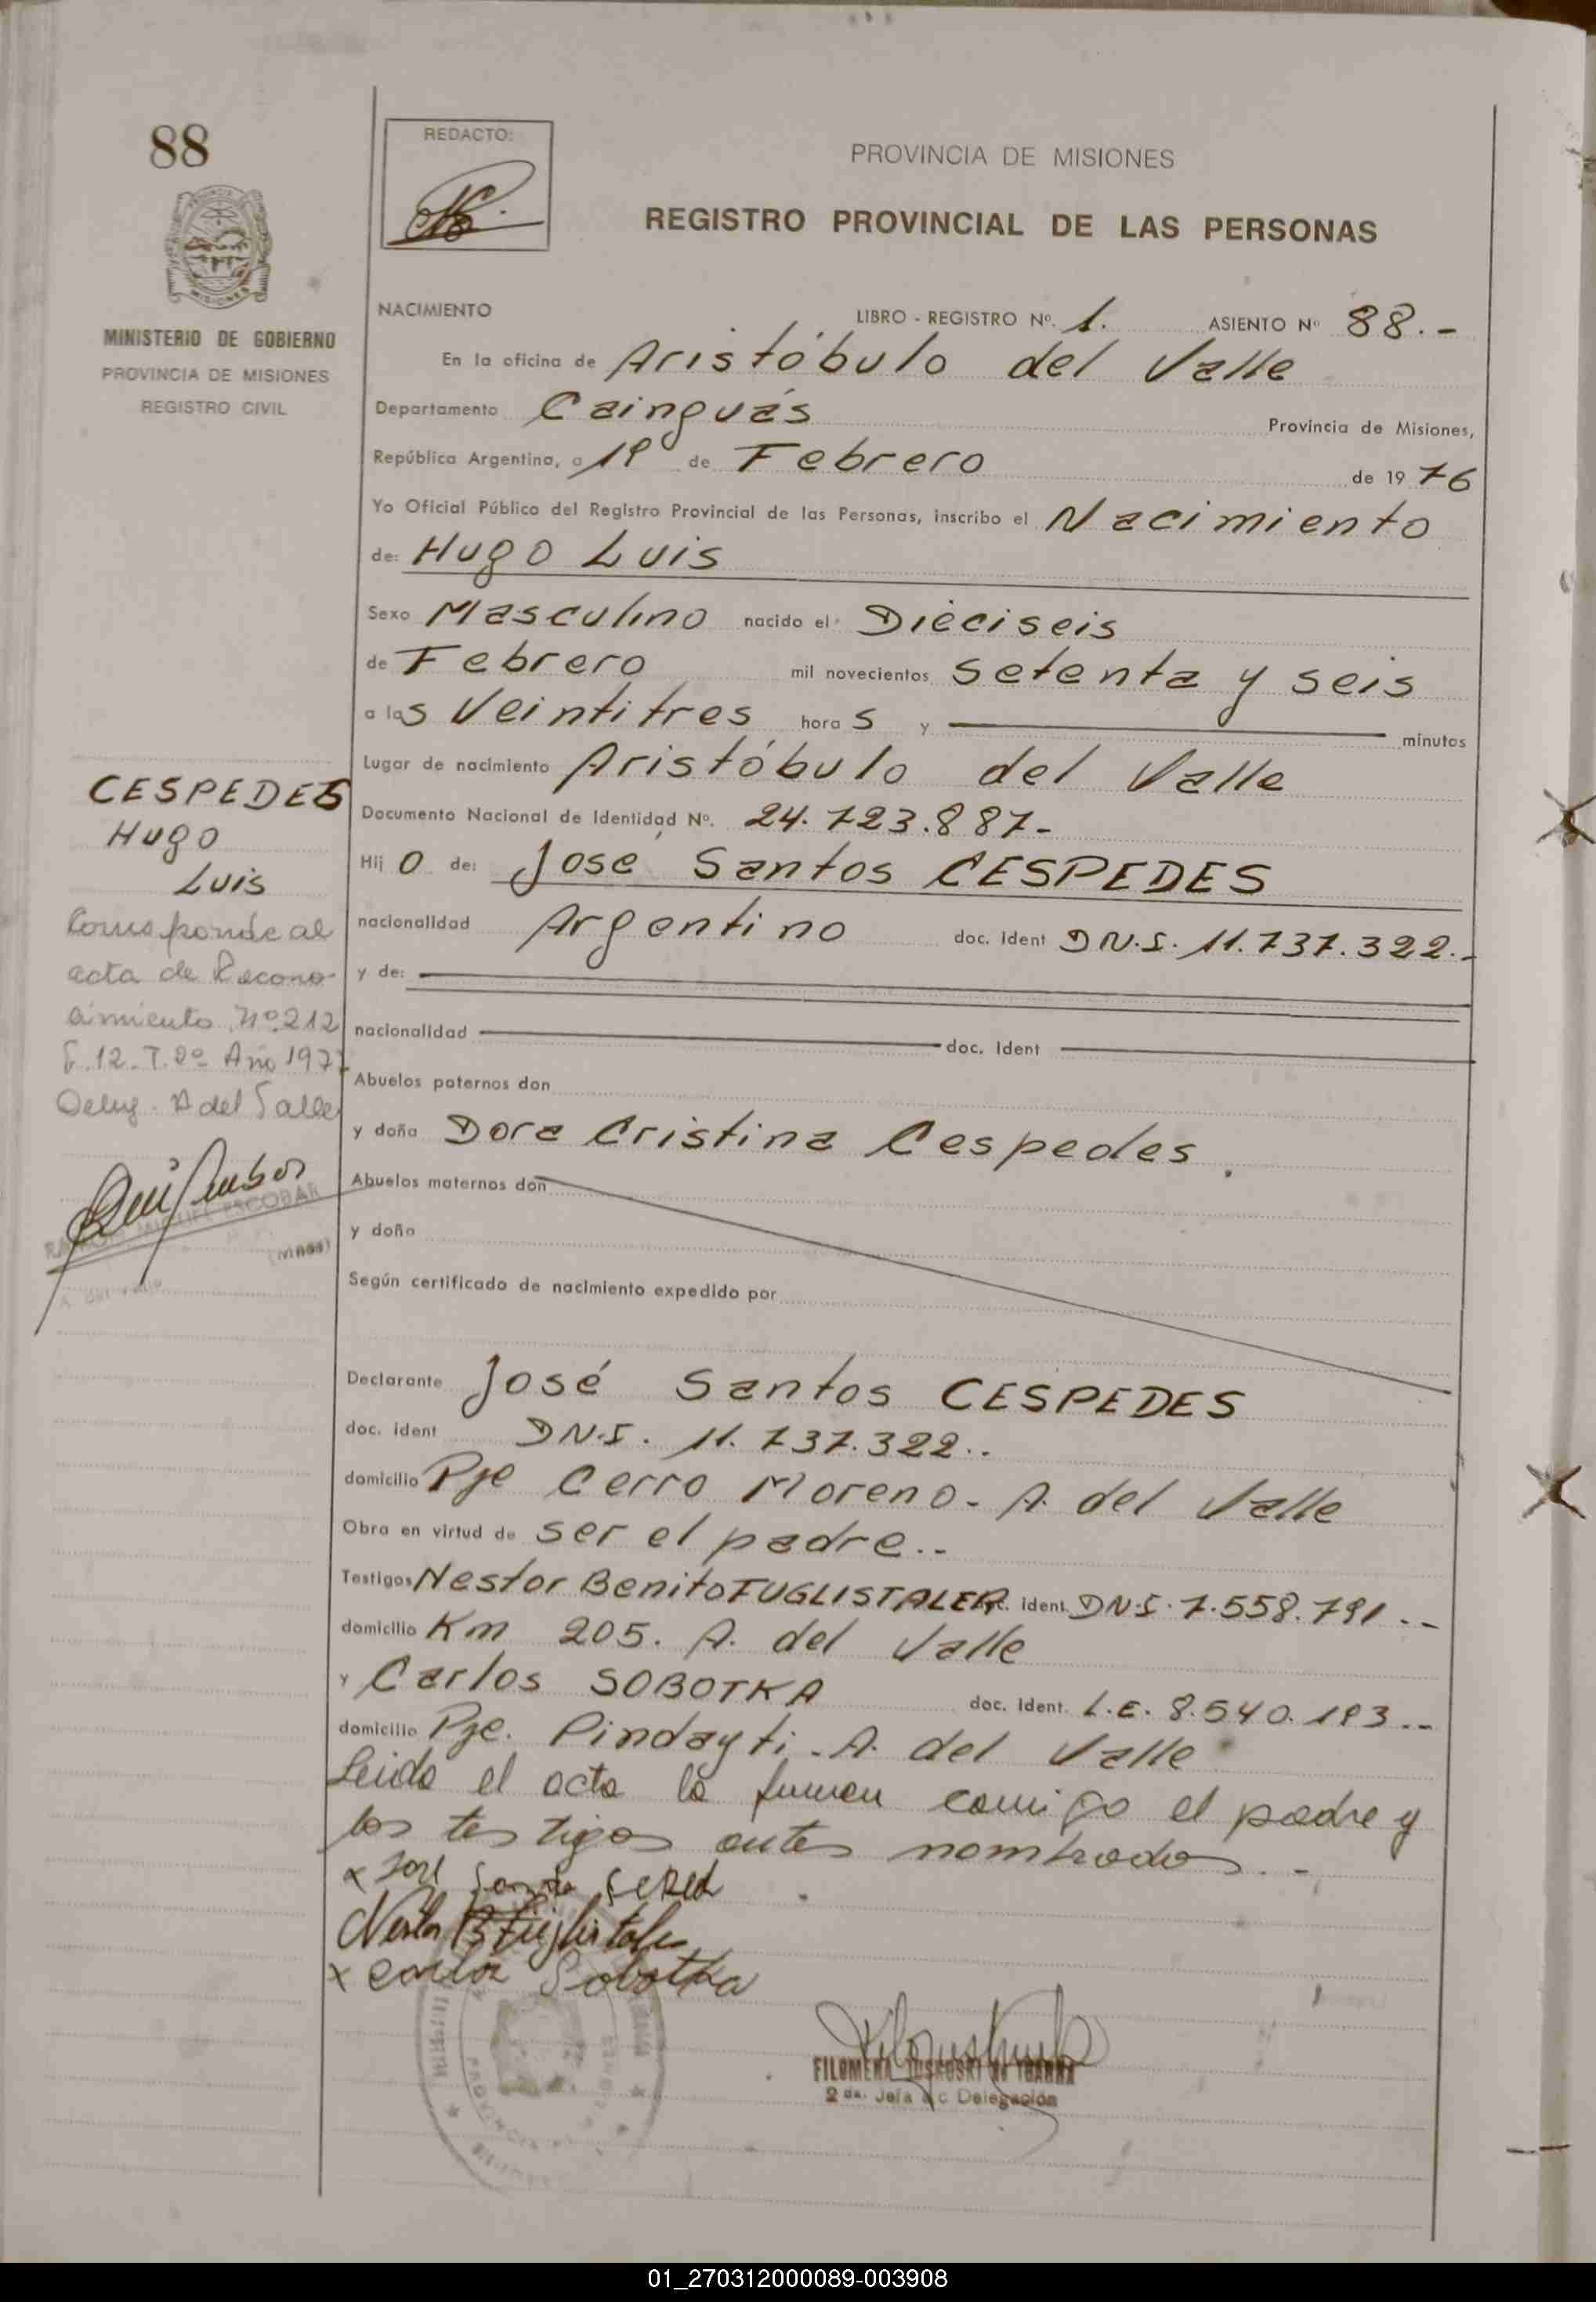 88
REDACTO:
PROVINCIA DE MISIONES
REGISTRO PROVINCIAL DE LAS PERSONAS
MINISTERIO DE GOBIERNO
PROVINCIA DE MISIONES
REGISTRO CIVIL
NACIMIENTO LIBRO - REGISTRO Nº. 1. ASIENTO Nº 88.-
En la oficina de Aristóbulo del Valle
Departamento Cainguás Provincia de Misiones,
República Argentina, a 19 de Febrero de 1976
Yo Oficial Público del Registro Provincial de las Personas, inscribo el Nacimiento
de: Hugo Luis
Sexo Masculino nacido el Dieciseis
de Febrero mil novecientos setenta y seis
a las Veintitres horas y minutos
Lugar de nacimiento Aristóbulo del Valle
Documento Nacional de Identidad Nº. 24.723.887-
Hijo de: José Santos CESPEDES
nacionalidad Argentino doc. ident D.N.I. 11.737.322.-
y de:
nacionalidad doc. ident
Abuelos paternos don
y doña Dora Cristina Cespedes.
Abuelos maternos don
y doña
Según certificado de nacimiento expedido por
Declarante José Santos CESPEDES
doc. ident D.N.I. 11.737.322..
domicilio Pje Cerro Moreno- A. del Valle
Obra en virtud de ser el padre..
Testigos Nestor Benito FUGLISTALER ident. D.N.I. 7.558.791..
domicilio Km 205. A. del Valle
y Carlos SOBOTKA doc. ident. L.E. 8.540.193..
domicilio Pje. Pindayti. A. del Valle
Leida el acta la firman conmigo el padre y
los testigos antes nombrados.-
CESPEDES
Hugo
Luis
Corresponde al
acta de Recono
cimiento Nº 212
F.12-T.2º Año 197
A del Valle
RAMON MIGUEL ESCOBAR
x José
Nestor B Fuglistaler
x Carlos Sobotka
FILOMENA DE IBARRA
2da. Jefa a/c Delegación
01_270312000089-003908